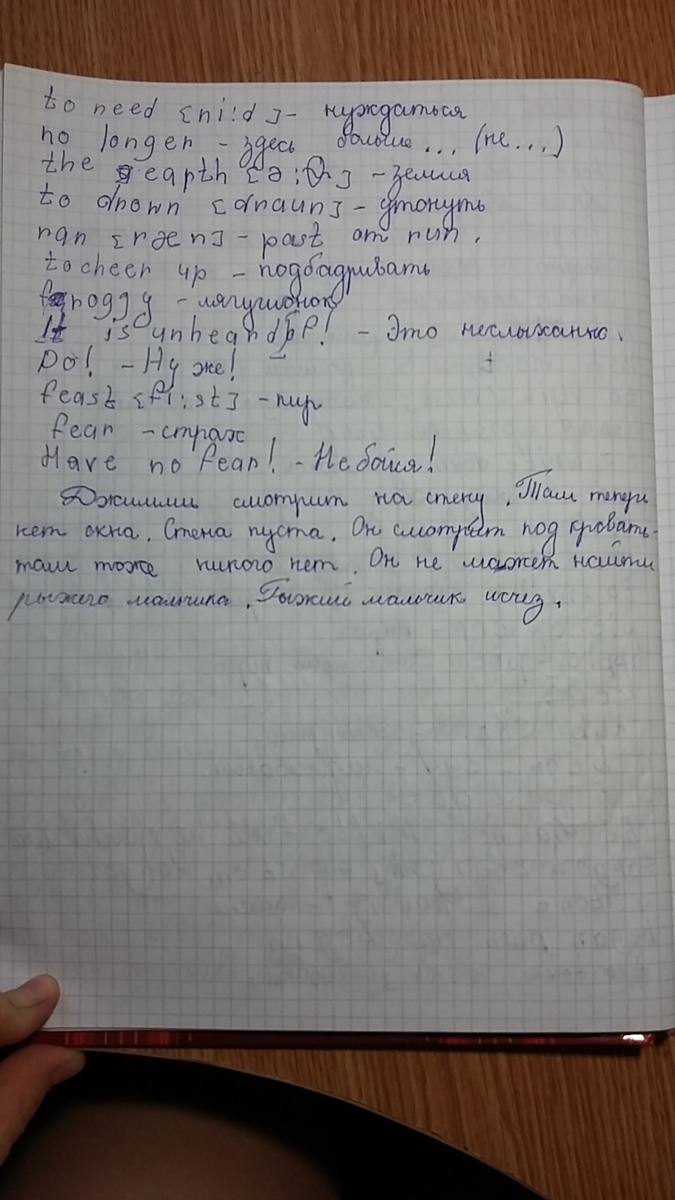 to need [ni:d] - нуждаться
no longer - здесь больше ... (не...)
the earth [ə:θ] - земля
to drown [draun] - утонуть
ran [ræn] - past от run.
to cheer up - подбадривать
froggy - лягушонок
It is unheard of! - Это неслыханно.
Do! - Ну же!
feast [fi:st] - пир
fear - страх
Have no fear! - Не бойся!
Джимми смотрит на стену. Там теперь
нет окна. Стена пуста. Он смотрит под кровать-
там тоже никого нет. Он не может найти
рыжего мальчика. Рыжий мальчик исчез.